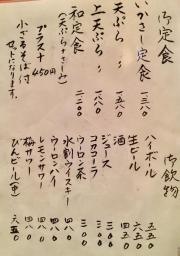 御定食
いかさし定食 一三八〇
天ぷら〃 一五八〇
上天ぷら〃 一八八〇
和定食 二二〇〇
(天ぷらとさしみ)
プラス+450円
小ざるそば付
セットになります。
御飲物
ハイボール 五五〇
生ビール 六五〇
酒 四五〇
ジュース 三〇〇
コカコーラ 三〇〇
ウーロン茶 三〇〇
水割ウイスキー 四八〇
ウーロンハイ 四八〇
レモンサワー 四八〇
梅サワー 四八〇
びんビール(中) 六五〇